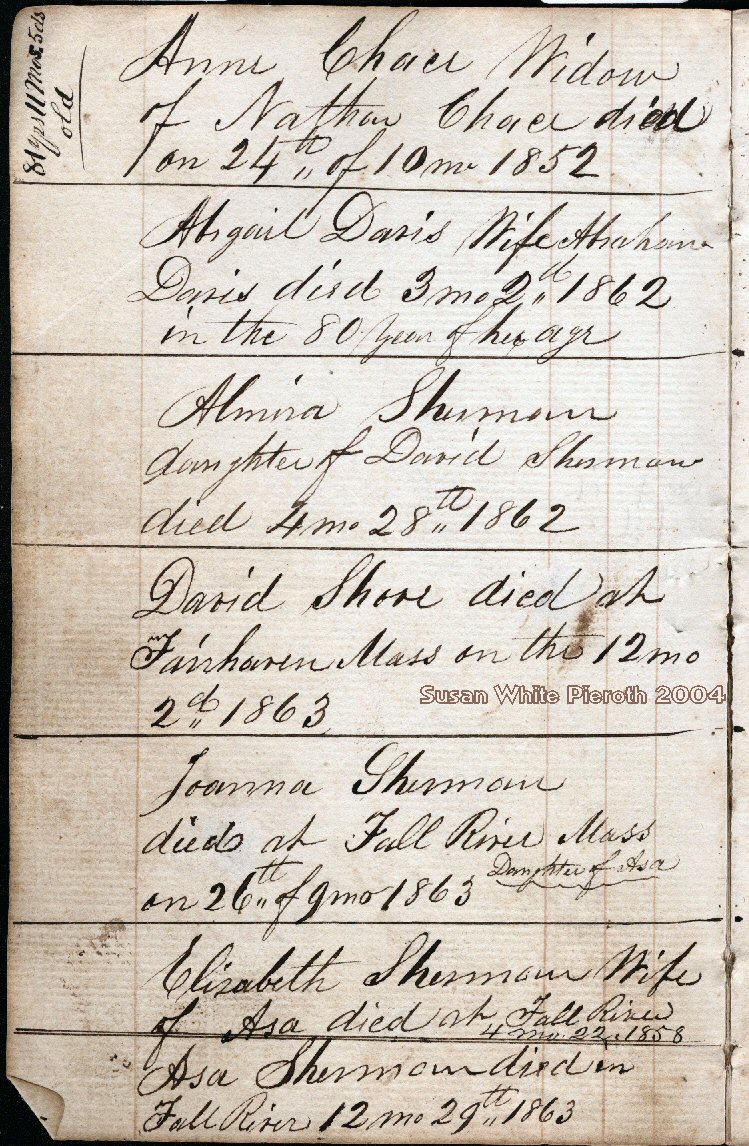 81 yrs 11 Mos 5 ds
old
Anne Chace Widow
of Nathan Chace died
on 24th of 10 mo 1852
Abigail Davis Wife Abraham
Davis died 3 mo 2d 1862
in the 80 year of her age
Almira Sherman
daughter of David Sherman
died 4 mo 28th 1862
David Shove died at
Fairhaven Mass on the 12 mo
2d 1863
Susan White Pieroth 2004
Joanna Sherman
died at Fall River Mass
Daughter of Asa
on 26th of 9 mo 1863
Elizabeth Sherman Wife
of Asa died at Fall River
4 mo 22 1858
Asa Sherman died in
Fall River 12 mo 29th 1863